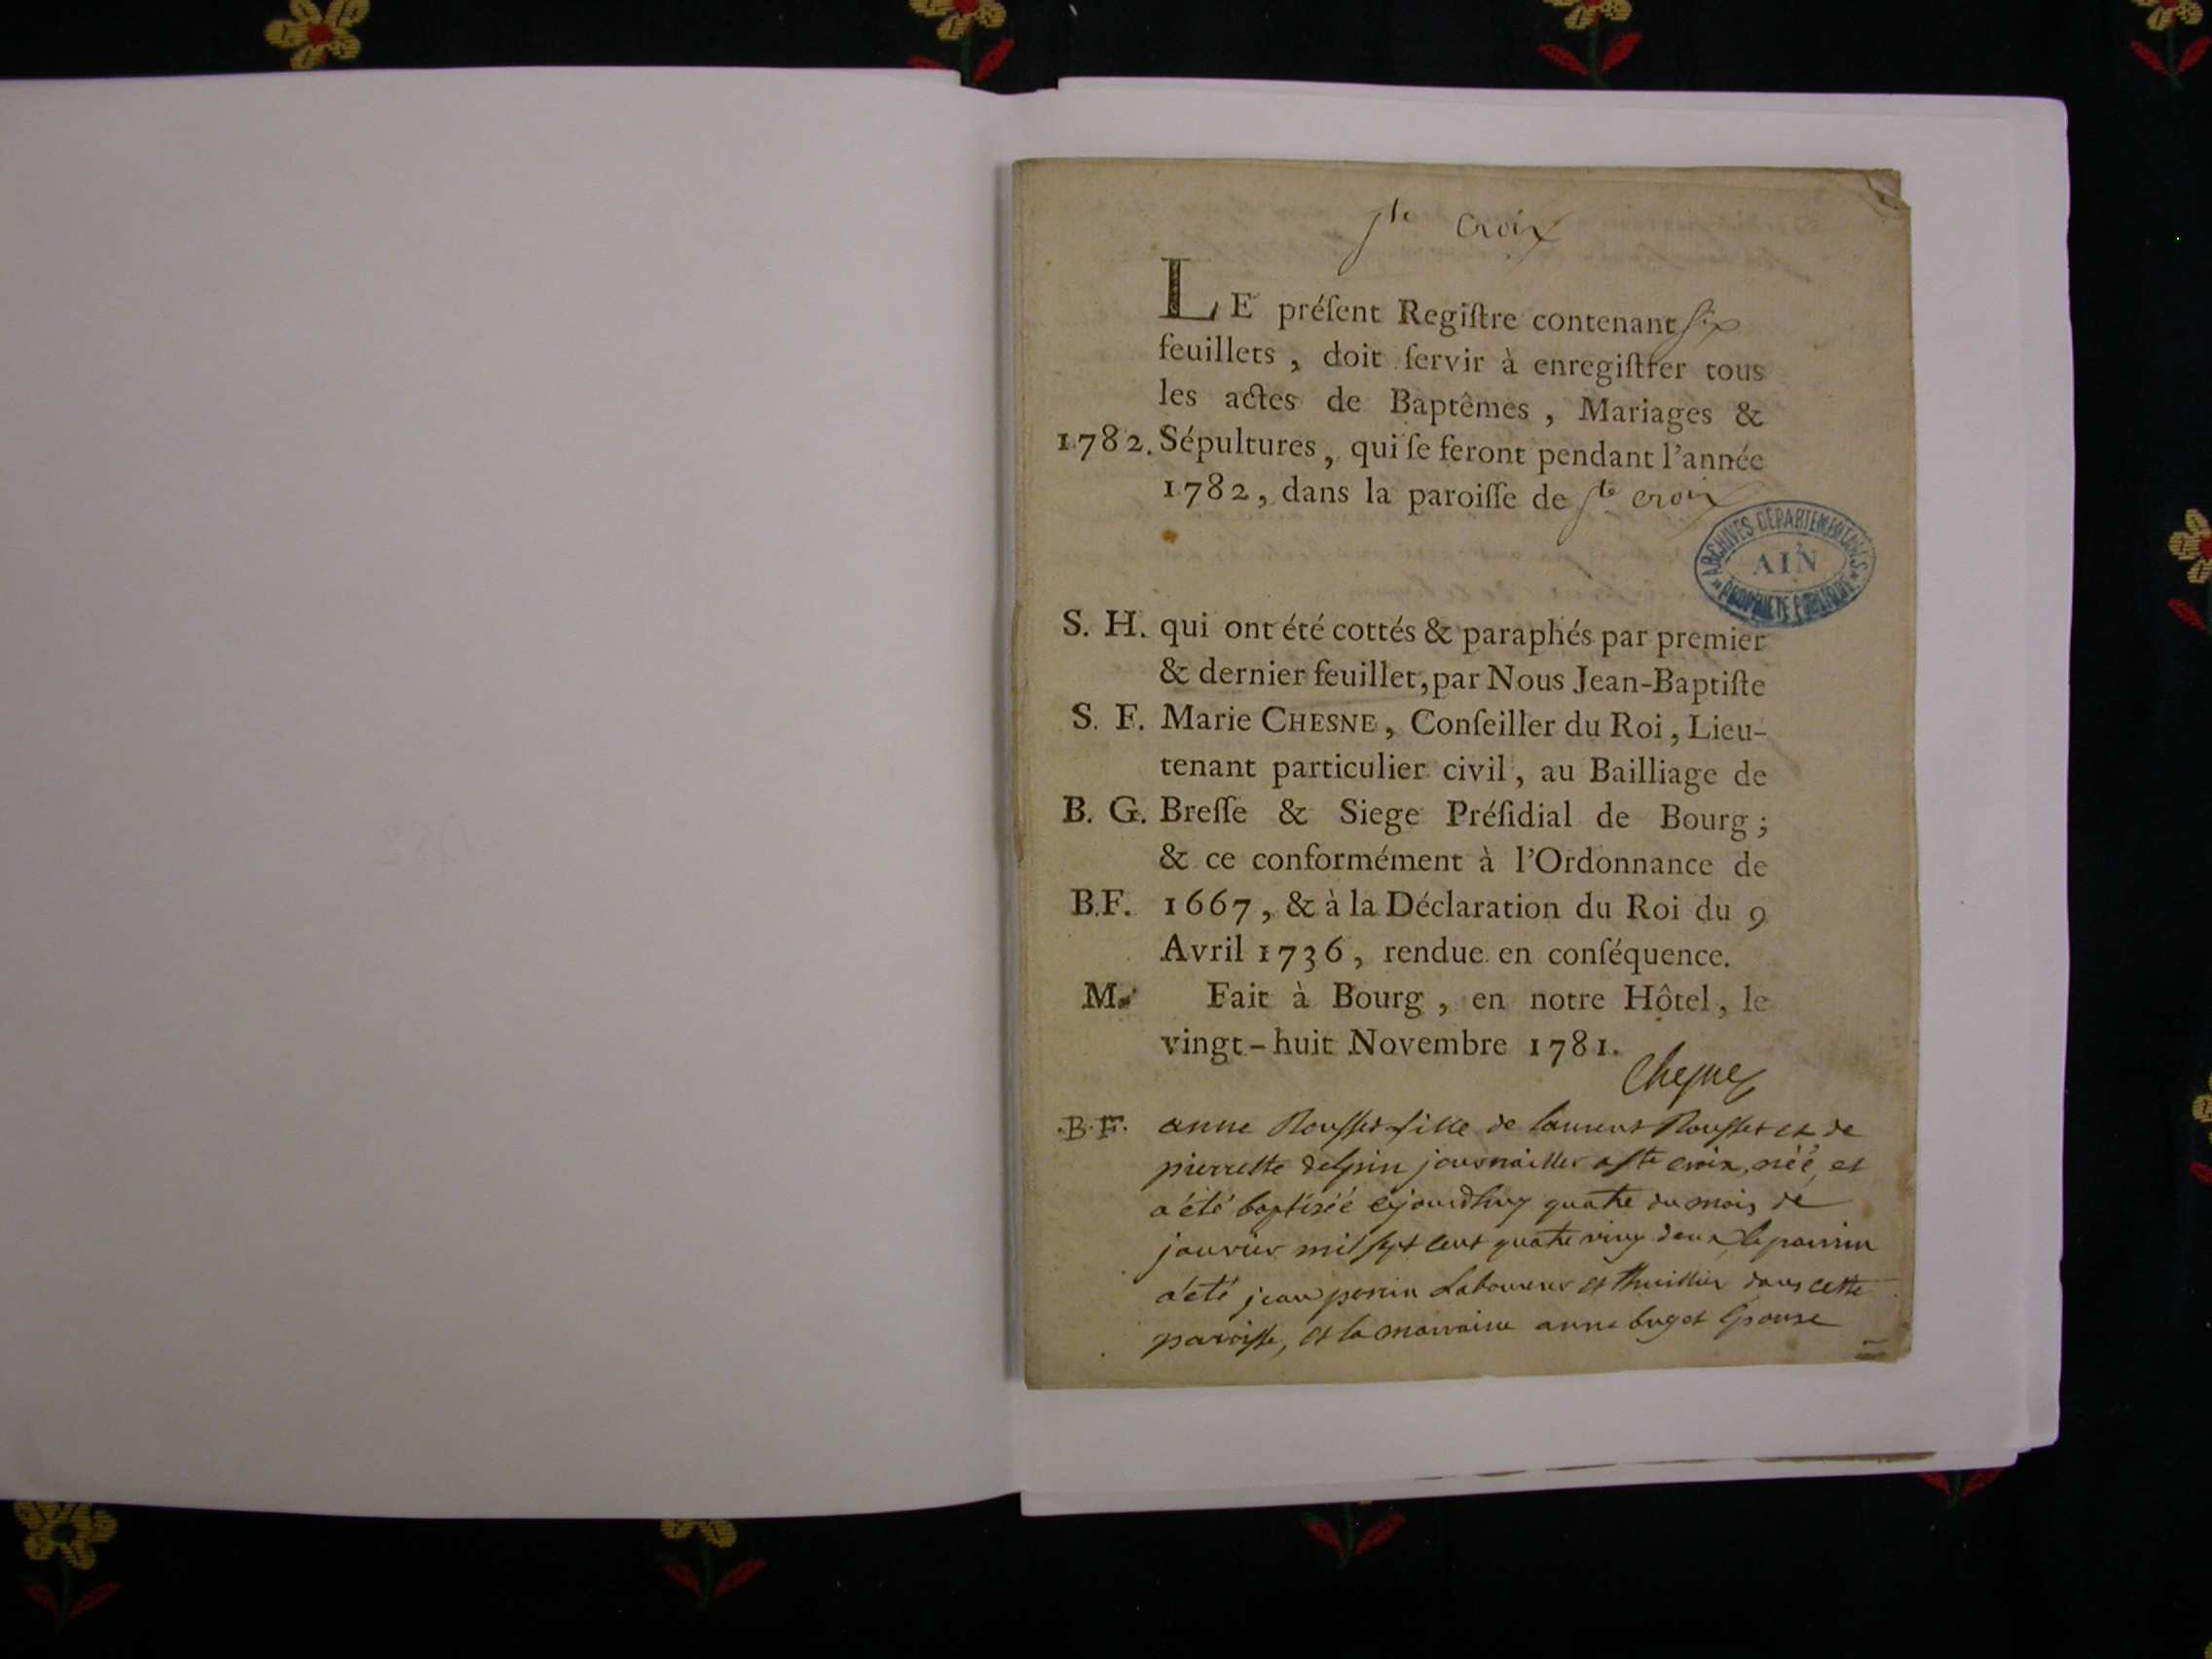 Ste Croix
LE préſent Regiſtre contenant ſix
feuillets, doit ſervir à enregiſtrer tous
les actes de Baptêmes, Mariages &
1782. Sépultures, qui ſe feront pendant l'année
1782, dans la paroiſſe de Ste croix
ARCHIVES DÉPARTEMENTALES
AIN
PROPRIÉTÉ PUBLIQUE
S. H. qui ont été cottés & paraphés par premier
& dernier feuillet, par Nous Jean-Baptiſte
S. F. Marie CHESNE, Conſeiller du Roi, Lieu-
tenant particulier civil, au Bailliage de
B. G. Breſſe & Siege Préſidial de Bourg;
& ce conformément à l'Ordonnance de
B.F. 1667, & à la Déclaration du Roi du 9
Avril 1736, rendue en conſéquence.
M. Fait à Bourg, en notre Hôtel, le
vingt-huit Novembre 1781.
Chesne
.B.F. anne Rousset fille de laurent Rousset et de
pierrette journailler a Ste croix, néé et
a été baptiséé ce jourdhuy quatre du mois de
janvier mil sept cent quatre ving deux le parrin
a été jean perrin Laboureur et thuillier dans cette
paroisse, et la marraine anne buget Epouse